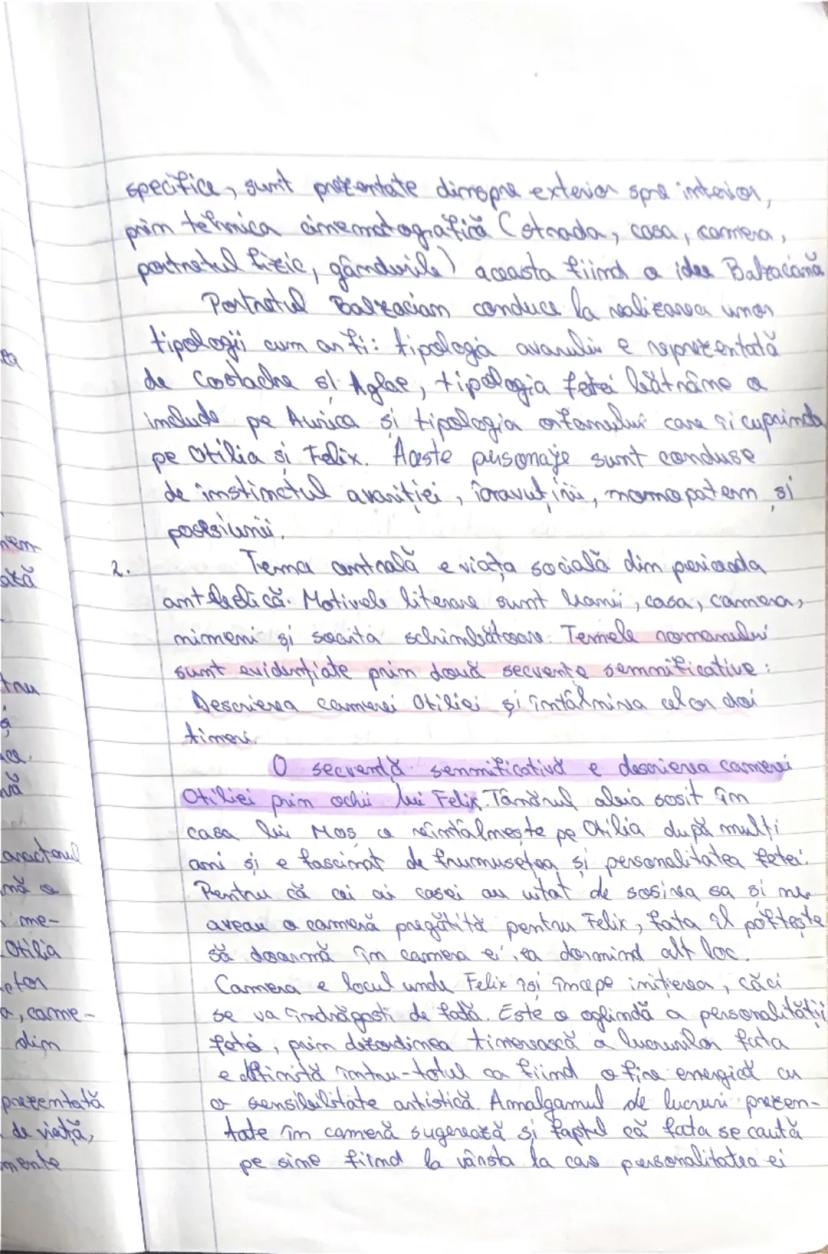 specifice, sunt prezentate dinspre exterior spre interior,
prin tehnica cinematografică (strada, casa, camera,
portretul fizic, gândurile) aceasta fiind o idee Balzaciană
Portretul Balzacian conduce la realizarea unor
tipologii cum ar fi: tipologia avarului e reprezentată
de Costache și Aglae, tipologia fetei bătrâne o
include pe Aurica și tipologia orfanului care îi cuprinde
pe Otilia și Felix. Aceste personaje sunt conduse
de instinctul avariției, matern și
posesiunii.
2. Tema centrală e viața socială din perioada
antebelică. Motivele literare sunt banii, casa, camera,
și schimbătoare. Temele romanului
sunt evidențiate prin două secvențe semnificative:
Descrierea camerei Otiliei și întâlnirea celor doi
tineri.
O secvență semnificativă e descrierea camerei
Otiliei prin ochii lui Felix. Tânărul abia sosit în
casa lui Moș C reîntâlnește pe Otilia după mulți
ani și e fascinat de frumusețea și personalitatea fetei.
Pentru că cei ai casei au uitat de sosirea sa și nu
aveau o cameră pregătită pentru Felix, fata îl poftește
să doarmă în camera ei, ea dormind alt loc.
Camera e locul unde Felix își începe inițierea, căci
se va îndrăgosti de fată. Este o oglindă a personalității
fetei, prin dezordinea tinerească a lucrurilor fata
e definită întru-totul ca fiind o fire energică cu
o sensibilitate artistică. Amalgamul de lucruri prezen-
tate în cameră sugerează și faptul că fata se caută
pe sine fiind la vârsta la care personalitatea ei
nem
ată
tru
și
ca.
vă
caracterul
nă o
me-
Otilia
, came-
din
prezentată
de viață,
mente